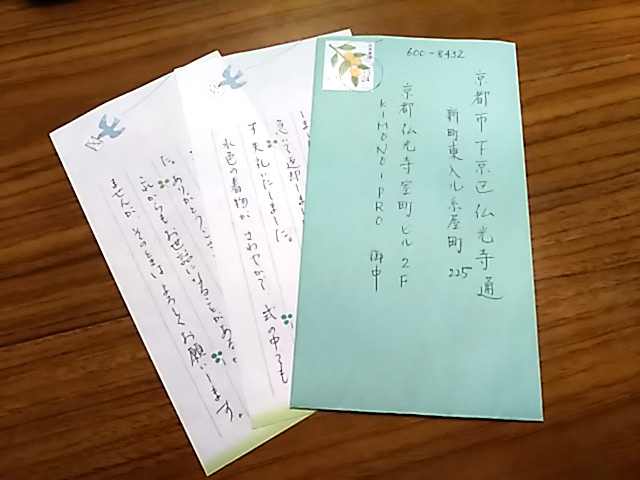 600-8432
京都市下京区仏光寺通
新町東入ル糸屋町225
京都仏光寺室町ビル2F
KIMONO-PRO 御中
急いで返却しま
す 失礼いたしました。
水色の着物が さわやかで、式の中でも
た。ありがとうござ
れからもお世話になることがあるか
ませんが、そのときは よろしくお願いします。